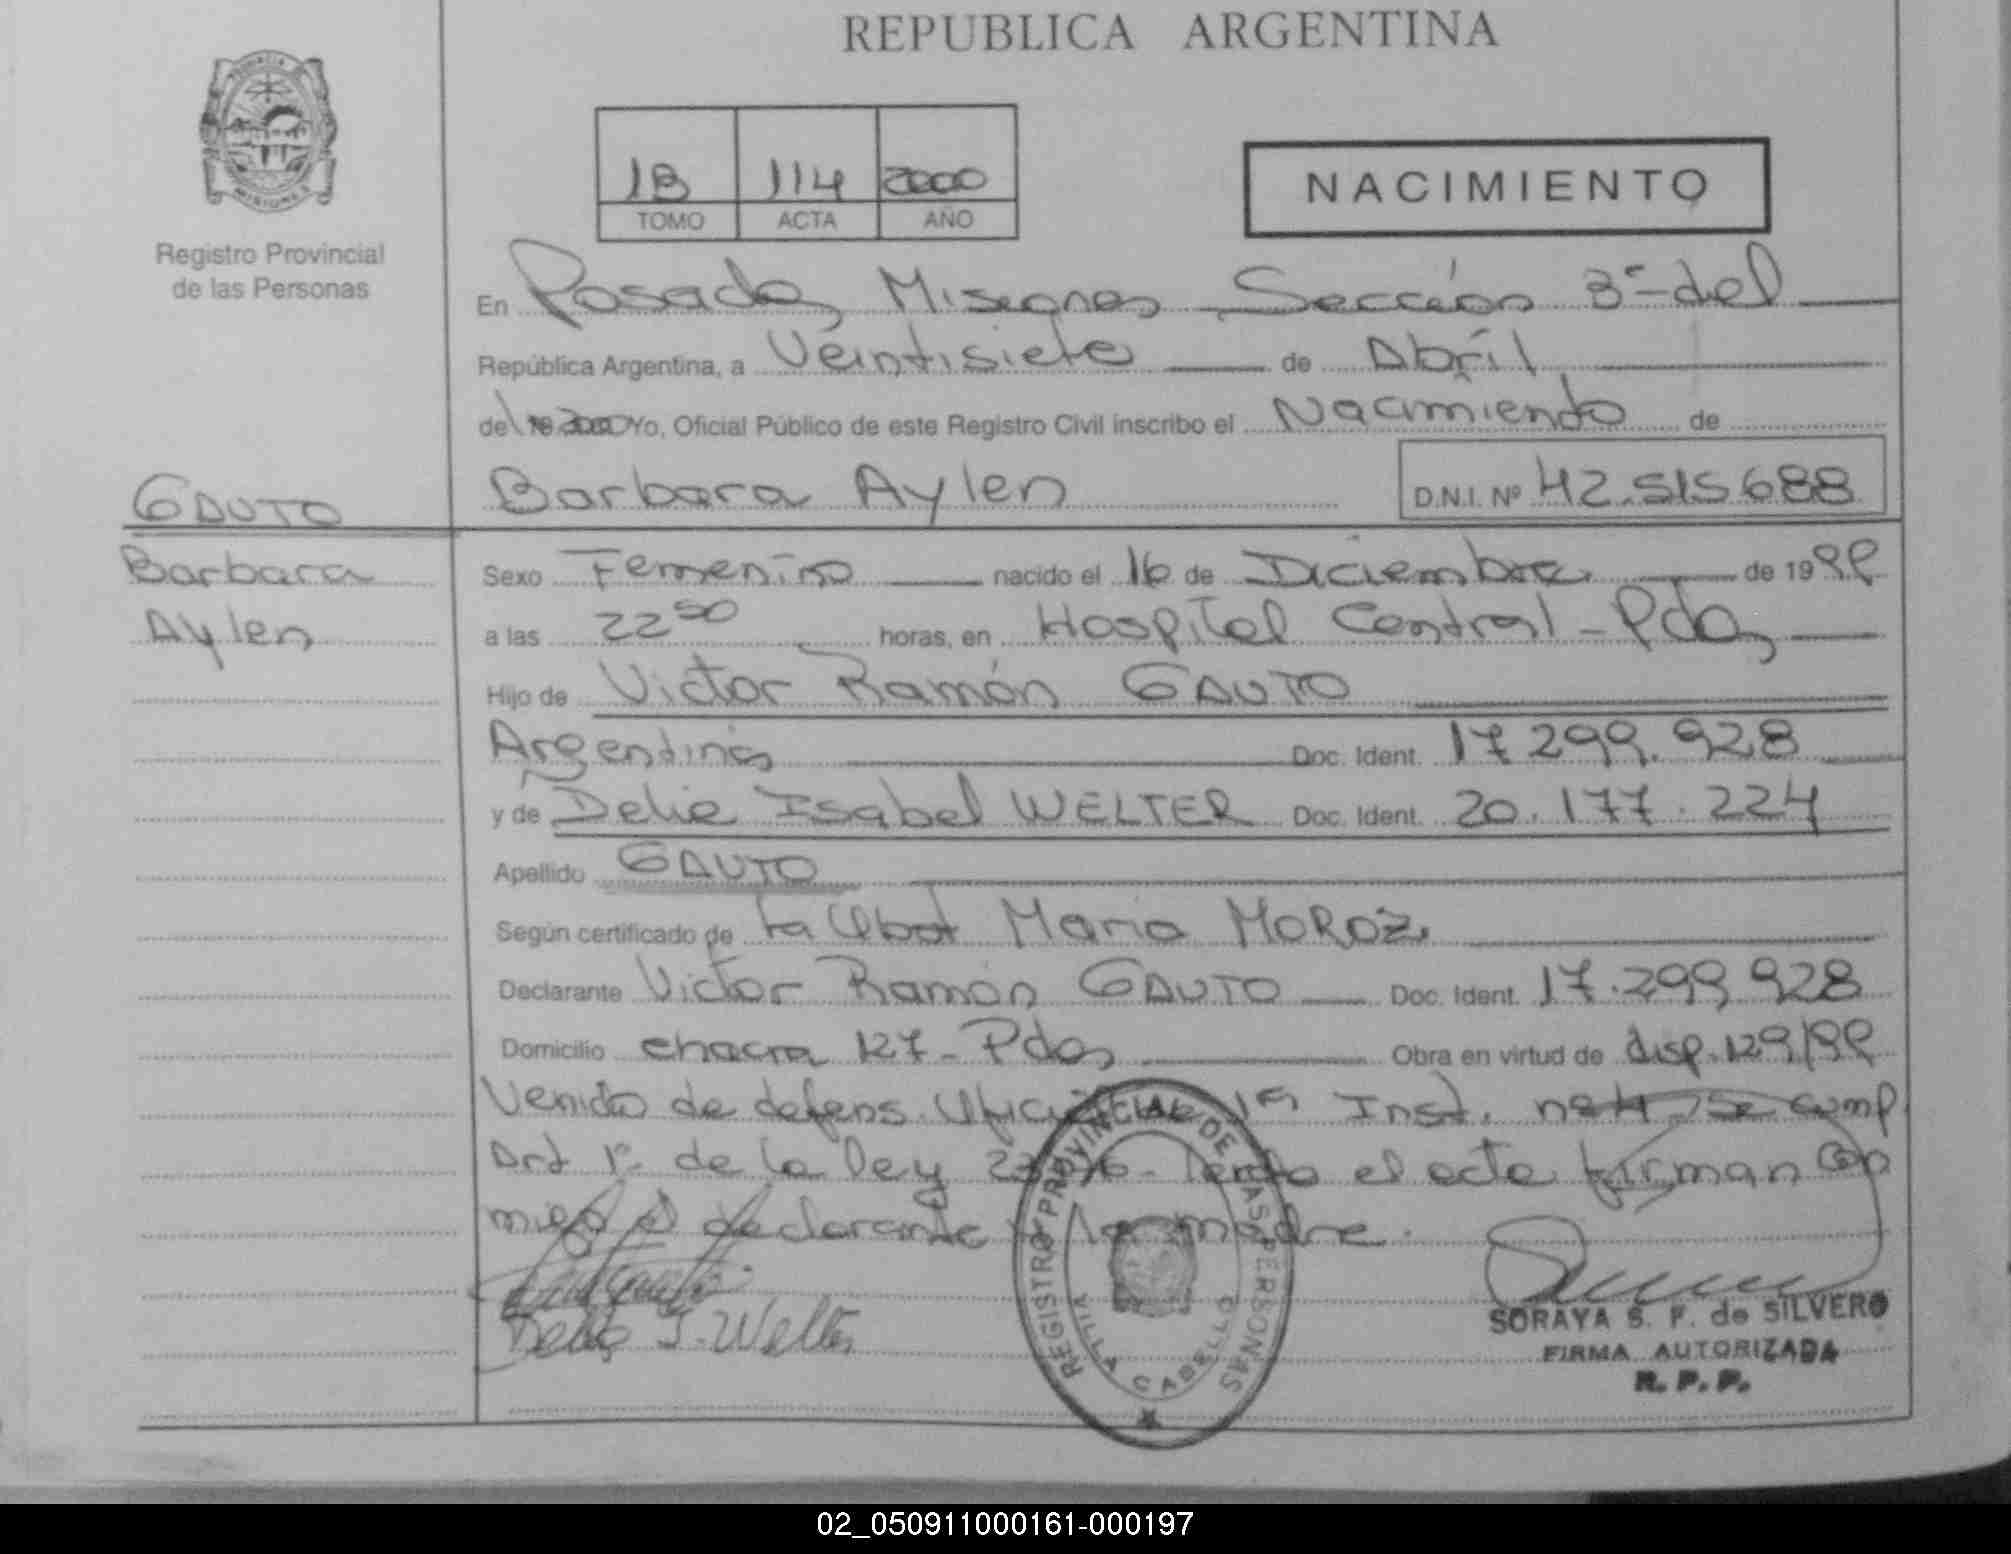 REPUBLICA ARGENTINA
1B 114 2000
TOMO ACTA AÑO
NACIMIENTO
Registro Provincial
de las Personas
En Posadas, Misiones Sección 3º del
República Argentina, a Veintisiete de Abril
del 2000 Yo, Oficial Público de este Registro Civil inscribo el Nacimiento de
Barbara Aylen D.N.I. Nº 42.515.688
GAUTO
Barbara
Aylen
Sexo Femenino nacido el 16 de Diciembre de 1999
a las 22 50 horas, en Hospital Central - Pdas
Hijo de Victor Ramón GAUTO
Argentino Doc. Ident. 17.299.928
y de Delia Isabel WELTER Doc. Ident. 20.177.224
Apellido GAUTO
Según certificado de la Obst Maria MOROZ
Declarante Victor Ramón GAUTO Doc. Ident. 17.299.928
Domicilio chacra 127 - Pdas Obra en virtud de disp. 129/99
Venida de defens. Oficial de 1ª Inst. nº 4 se cump
Art 1º de la ley leida el acta firman con
migo el declarante y la madre.
Delia I. Welter
REGISTRO PROVINCIAL DE LAS PERSONAS
VILLA CABELLO
SORAYA S. F. de SILVERO
FIRMA AUTORIZADA
R. P. P.
02_050911000161-000197